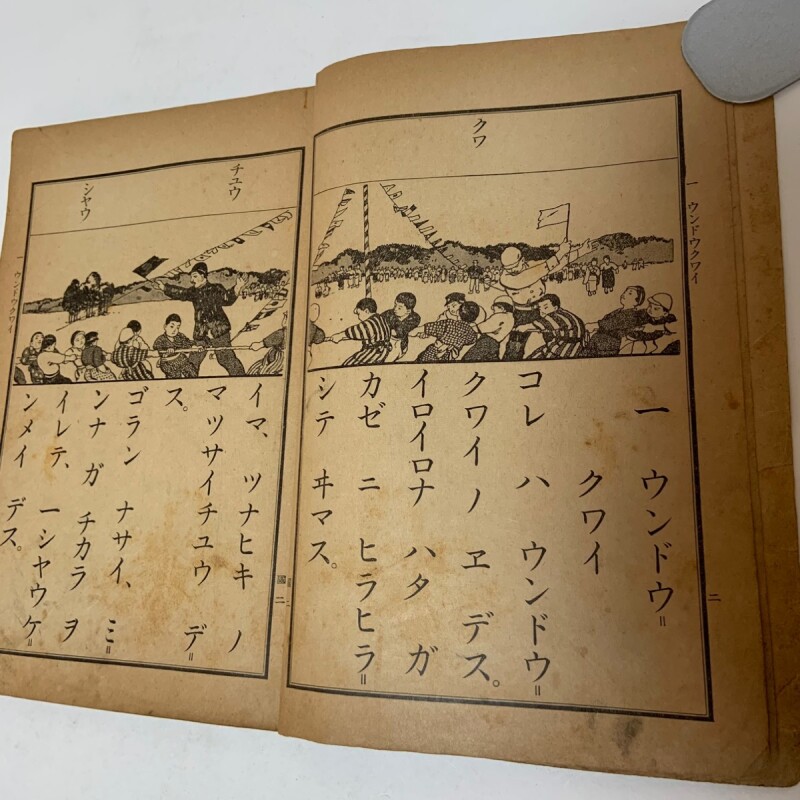 一 ウンドウクワイ
二
クワ
一 ウンドウ゠
クワイ
コレ ハ ウンドウ゠
クワイノ ヱ デス。
イロイロナ ハタ ガ
カゼ ニ ヒラヒラ゠
シテ ヰマス。
チユウ
シヤウ
イマ、 ツナヒキ ノ
マツサイチユウ デ゠
ス。
ゴラン ナサイ、 ミ゠
ンナ ガ チカラ ヲ
イレテ、 一シヤウケ゠
ンメイ デス。
一 ウンドウクワイ